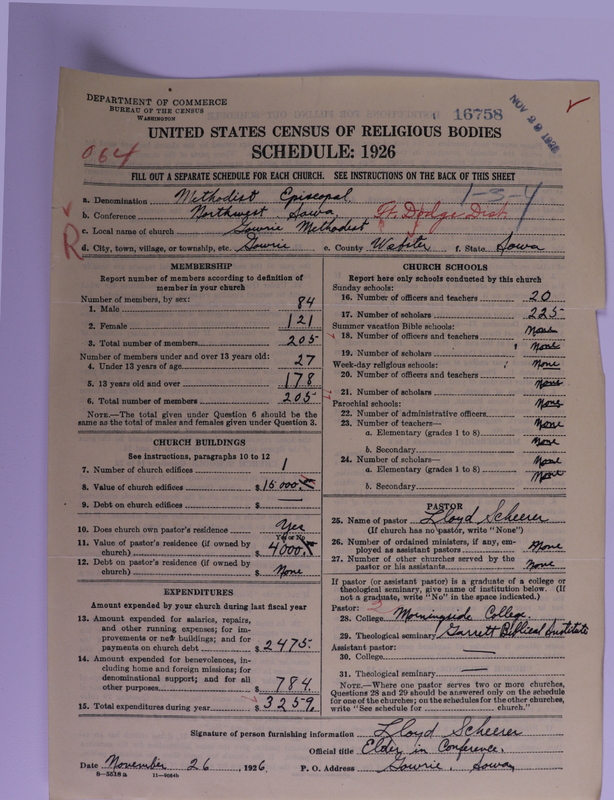 DEPARTMENT OF COMMERCE
BUREAU OF THE CENSUS
WASHINGTON
16758
NOV 29 1926
UNITED STATES CENSUS OF RELIGIOUS BODIES
064
SCHEDULE: 1926
FILL OUT A SEPARATE SCHEDULE FOR EACH CHURCH. SEE INSTRUCTIONS ON THE BACK OF THIS SHEET
a. Denomination Methodist Episcopal 1-3-4
b. Conference Northwest Iowa Ft. Dodge Dist
c. Local name of church Gowrie Methodist
R
d. City, town, village, or township, etc. Gowrie e. County Webster f. State Iowa
MEMBERSHIP
Report number of members according to definition of
member in your church
Number of members, by sex:
1. Male 84
2. Female 121
3. Total number of members 205
Number of members under and over 13 years old:
4. Under 13 years of age 27
5. 13 years old and over 178
6. Total number of members 205
NOTE.—The total given under Question 6 should be the
same as the total of males and females given under Question 3.
CHURCH BUILDINGS
See instructions, paragraphs 10 to 12
7. Number of church edifices 1
8. Value of church edifices $15000
9. Debt on church edifices $ —
10. Does church own pastor's residence Yes
Yes or No
11. Value of pastor's residence (if owned by
church) $4000
12. Debt on pastor's residence (if owned by
church) $ None
EXPENDITURES
Amount expended by your church during last fiscal year
13. Amount expended for salaries, repairs,
and other running expenses; for im-
provements or new buildings; and for
payments on church debt $2475
14. Amount expended for benevolences, in-
cluding home and foreign missions; for
denominational support; and for all
other purposes $784
15. Total expenditures during year $3259
CHURCH SCHOOLS
Report here only schools conducted by this church
Sunday schools:
16. Number of officers and teachers 20
17. Number of scholars 225
Summer vacation Bible schools:
18. Number of officers and teachers None
19. Number of scholars None
Week-day religious schools:
20. Number of officers and teachers None
21. Number of scholars None
Parochial schools:
22. Number of administrative officers None
23. Number of teachers—
a. Elementary (grades 1 to 8) None
b. Secondary None
24. Number of scholars—
a. Elementary (grades 1 to 8) None
b. Secondary None
PASTOR
25. Name of pastor Lloyd Scheerer
(If church has no pastor, write "None")
26. Number of ordained ministers, if any, em-
ployed as assistant pastors None
27. Number of other churches served by the
pastor or his assistants None
If pastor (or assistant pastor) is a graduate of a college or
theological seminary, give name of institution below. (If
not a graduate, write "No" in the space indicated.)
Pastor: 2
28. College Morningside College
29. Theological seminary Garrett Biblical Institute
Assistant pastor:
30. College —
31. Theological seminary —
NOTE.—Where one pastor serves two or more churches,
Questions 28 and 29 should be answered only on the schedule
for one of the churches; on the schedules for the other churches,
write "See schedule for church."
Signature of person furnishing information Lloyd Scheerer
Official title Elder in Conference.
Date November 26, 1926 P. O. Address Gowrie, Iowa
8-5518a 11-9064b